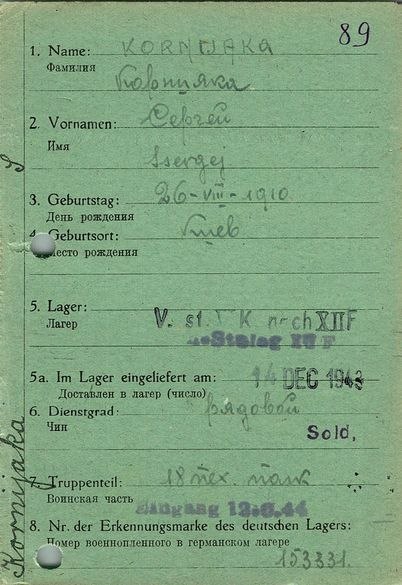 89
1. Name: KORNIJAKA
Фамилия
Корнияка
2. Vornamen: Сергей
Имя
Ssergej
3. Geburtstag: 26-VIII-1910
День рождения
4. Geburtsort: Киев
Место рождения
5. Lager: V. st. V K nach XII F
Лагер
Stalag XII F
5a. Im Lager eingeliefert am: 14 DEC 1943
Доставлен в лагер (число)
6. Dienstgrad: рядовой
Чин
Sold.
7. Truppenteil: 18 пех. полк
Воинская часть
Eingang 12.6.44
8. Nr. der Erkennungsmarke des deutschen Lagers:
Номер военнопленного в германском лагере
153331.
Kornijaka S